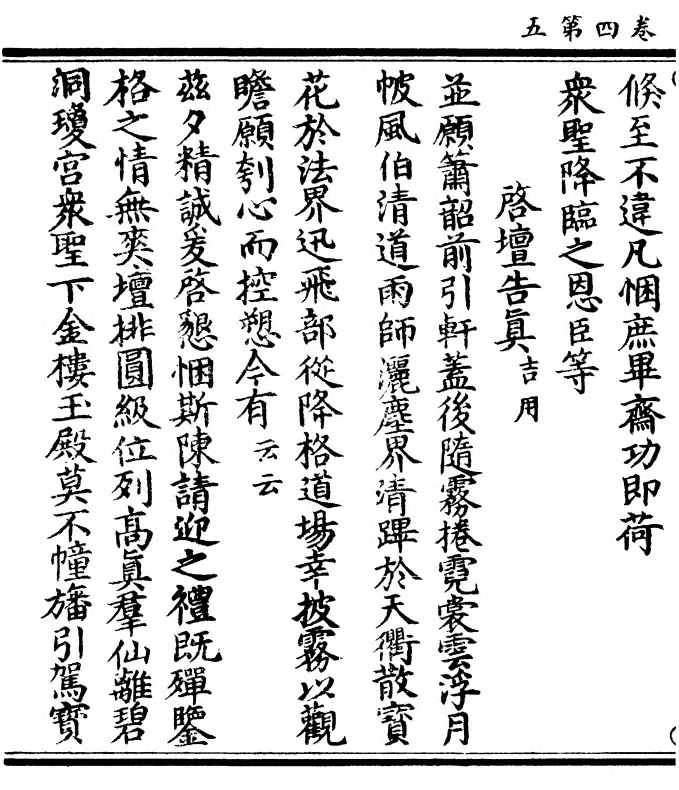 卷四第五
倏至不違凡悃庶畢齋功即荷
衆聖降臨之恩臣等
啓壇告眞吉用
並願簫韶前引軒蓋後隨霧捲霓裳雲浮月
帔風伯清道雨師灑塵界清蹕於天衢散寶
花於法界迅飛部從降格道場幸披霧以觀
瞻願刳心而控愬今有云云
茲夕精誠爰啓懇悃斯陳請迎之禮既殫鑒
格之情無爽壇排圓級位列高眞羣仙離碧
洞瓊宮衆聖下金樓玉殿莫不幢旛引駕寶